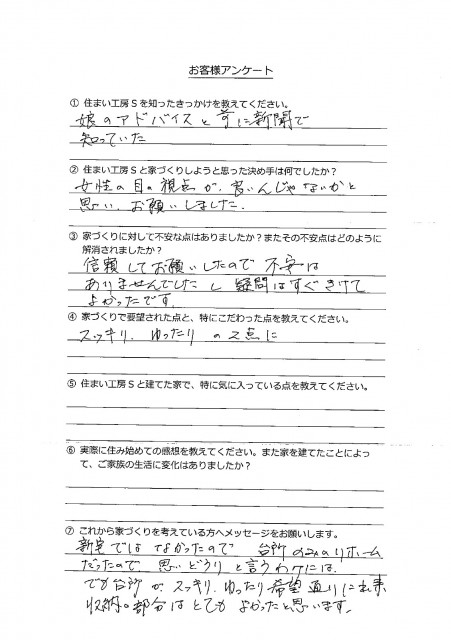 お客様アンケート
① 住まい工房Sを知ったきっかけを教えてください。
娘のアドバイスと前に新聞で
知っていた
② 住まい工房Sと家づくりしようと思った決め手は何でしたか？
女性の目の視点が、良いんじゃないかと
思い、お願いしました。
③ 家づくりに対して不安な点はありましたか？またその不安点はどのように
解消されましたか？
信頼してお願いしたので 不安は
ありませんでしたし 疑問はすぐきけて
よかったです。
④ 家づくりで要望された点と、特にこだわった点を教えてください。
スッキリ、ゆったり の2点に
⑤ 住まい工房Sと建てた家で、特に気に入っている点を教えてください。
⑥ 実際に住み始めての感想を教えてください。また家を建てたことによっ
て、ご家族の生活に変化はありましたか？
⑦ これから家づくりを考えている方へメッセージをお願いします。
新宅ではなかったので 台所のみのリホーム
だったので 思いどうりと言うわけには、
でも台所が、スッキリ、ゆったり希望通りに出来
収納の部分はとてもよかったと思います。